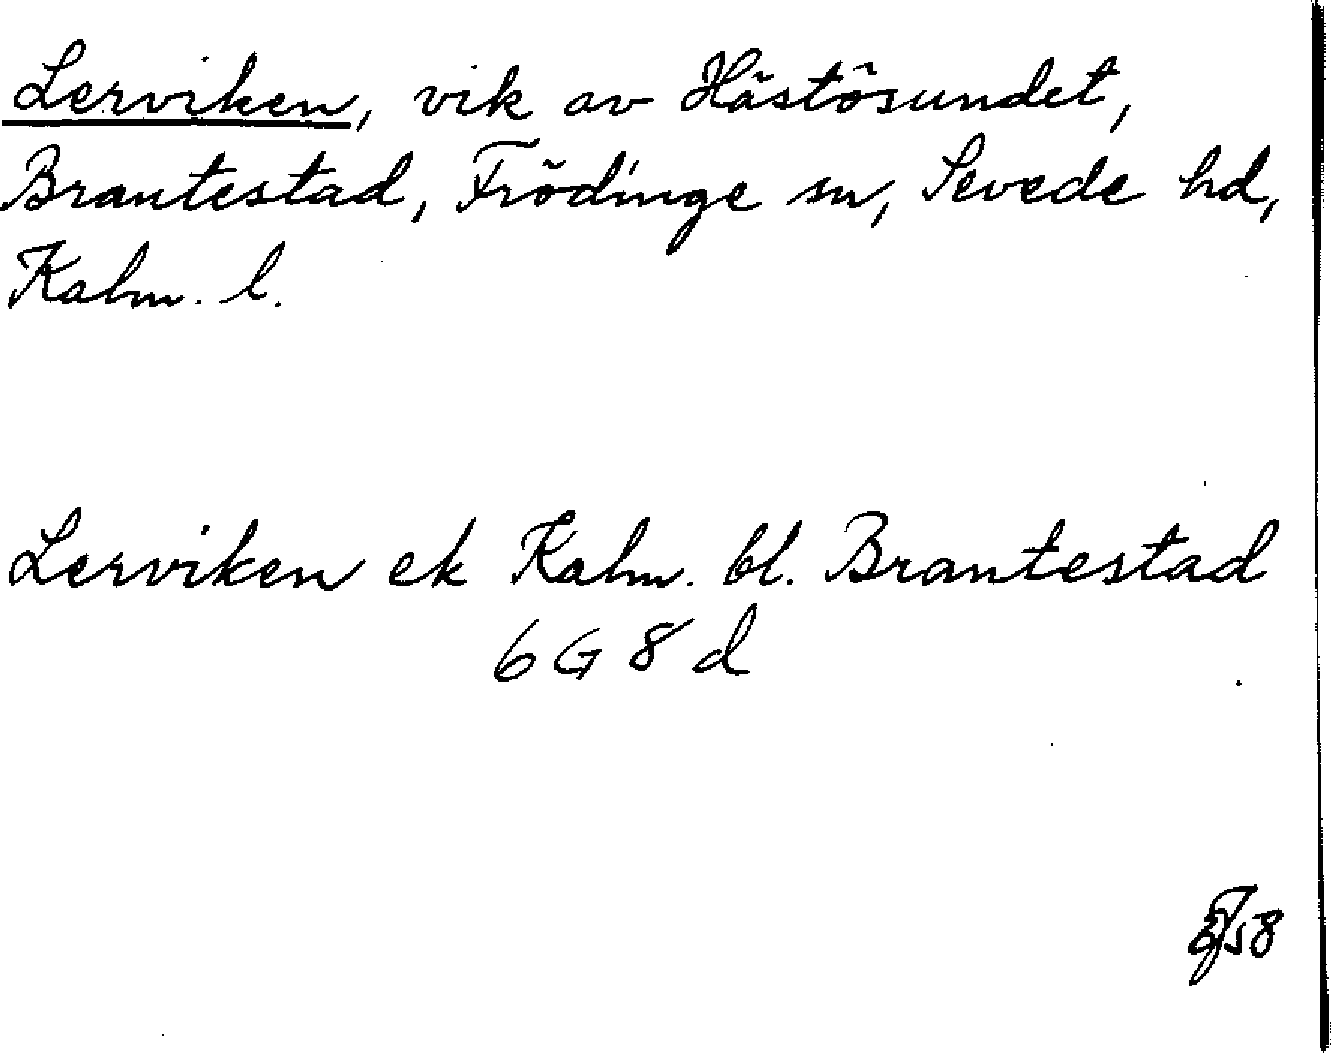 Lerviken, vik av Hästösundet,
Brantestad, Frödinge sn, Sevede hd,
Kalm. l.
Lerviken ek Kalm. bl. Brantestad
6 G 8 d
58